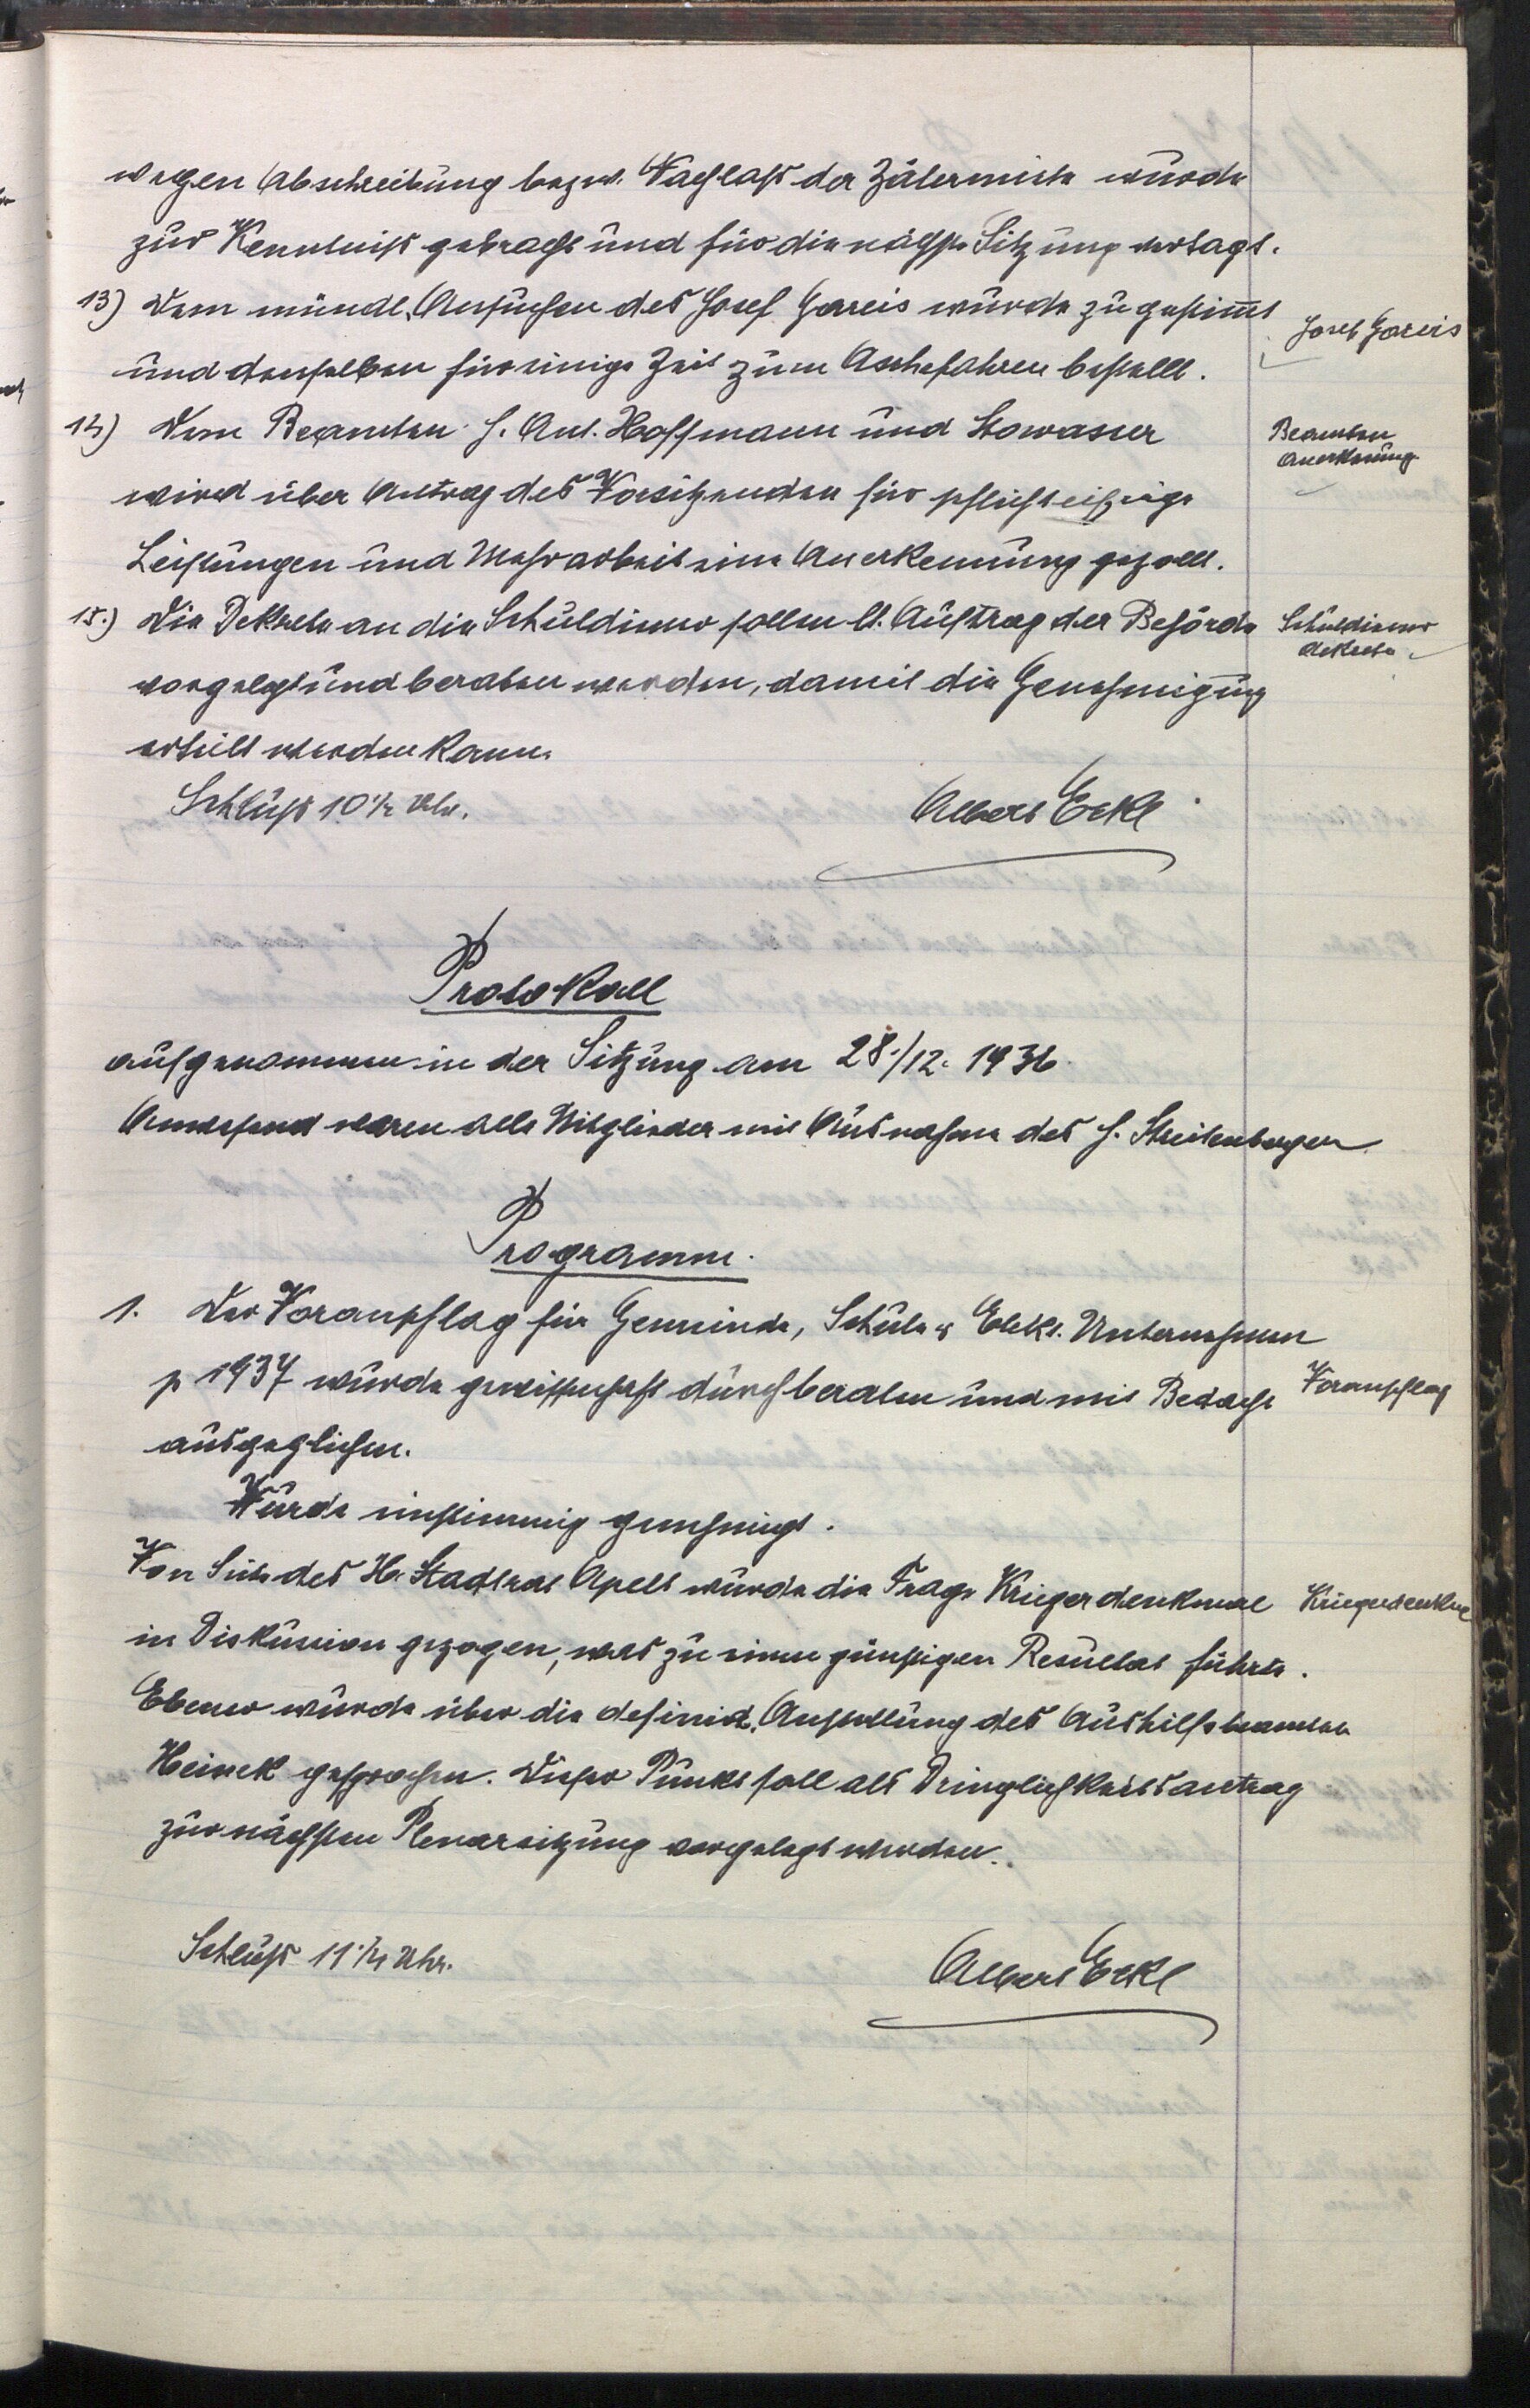 wegen Abschreibung bezw. Nachlaß der Zälermiete wurde
zur Kenntniß gebracht und für die nächste Sitzung vertagt.
13) Dem mündl. Ansuchen des Josef Gareis wurde zugestimmt
Josef Gareis
und denselben für einige Zeit zum Aschefahren bestellt.
14) Dem Beamten H. Ant. Hoffmann und Stowasser
Beamten
Anerkenung
wird über Antrag des Vorsitzenden für pflichteifrige
Leistungen und Mehrarbeit eine Anerkennung gezollt.
15.) Die Dekrete an die Schuldiener sollen lt. Auftrag der Behörde
Schuldiener
dekrete
vorgelegt und beraten werden, damit die Genehmigung
erteilt werden kann.
Schluß 10½ Uhr.
Albert Eckl
Protokoll
aufgenommen in der Sitzung am 28./12. 1936.
Anwesend waren alle Mitglieder mit Ausnahme des H. Streitenberger
Programm.
1. Der Voranschlag für Gemeinde, Schule & Elekt. Unternehmen
p 1937 wurde gewissenhaft durchberaten und mit Bedacht
Voranschlag
ausgeglichen.
Wurde einstimmig genehmigt.
Von Seite des H. Stadtrat Apelt wurde die Frage Kriegerdenkmal
Kriegerdenkmal
in Diskussion gezogen, was zu einem günstigen Resultat führte.
Ebenso wurde über die definit. Anstellung des Aushilfsbeamten
Heinek gesprochen. Dieser Punkt soll als Dringlichkeitsantrag
zur nächsten Plenarsitzung vorgelegt werden.
Schluß 11¼ Uhr.
Albert Eckl